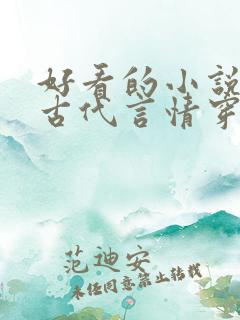 好看的小说
古代言情穿
范迪安
未经同意禁止转载